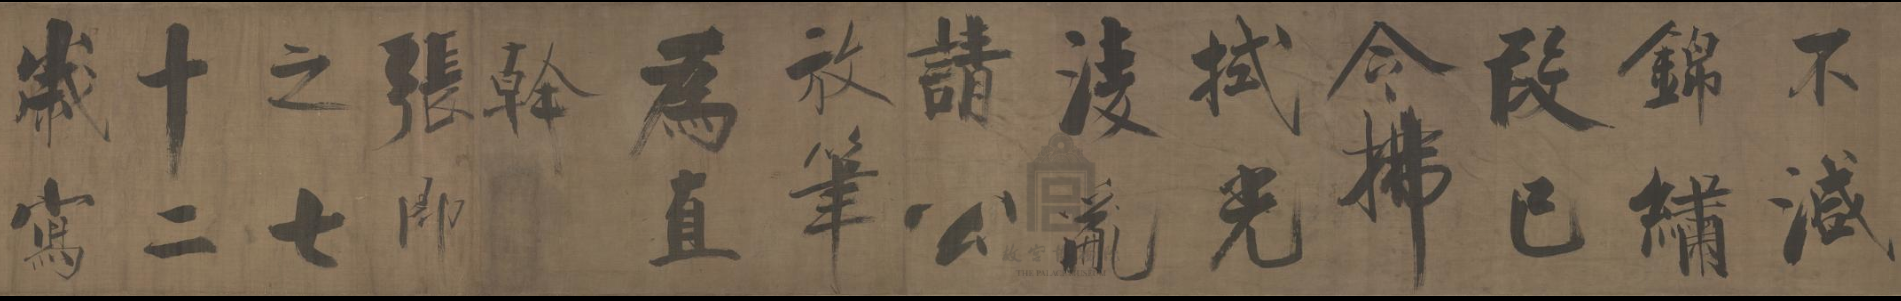 不減
錦繡
段已
令拂
拭光
淩亂
請公
放筆
為直
幹
張即
之七
十二
歲寫
故宮博物院
THE PALACE MUSEUM